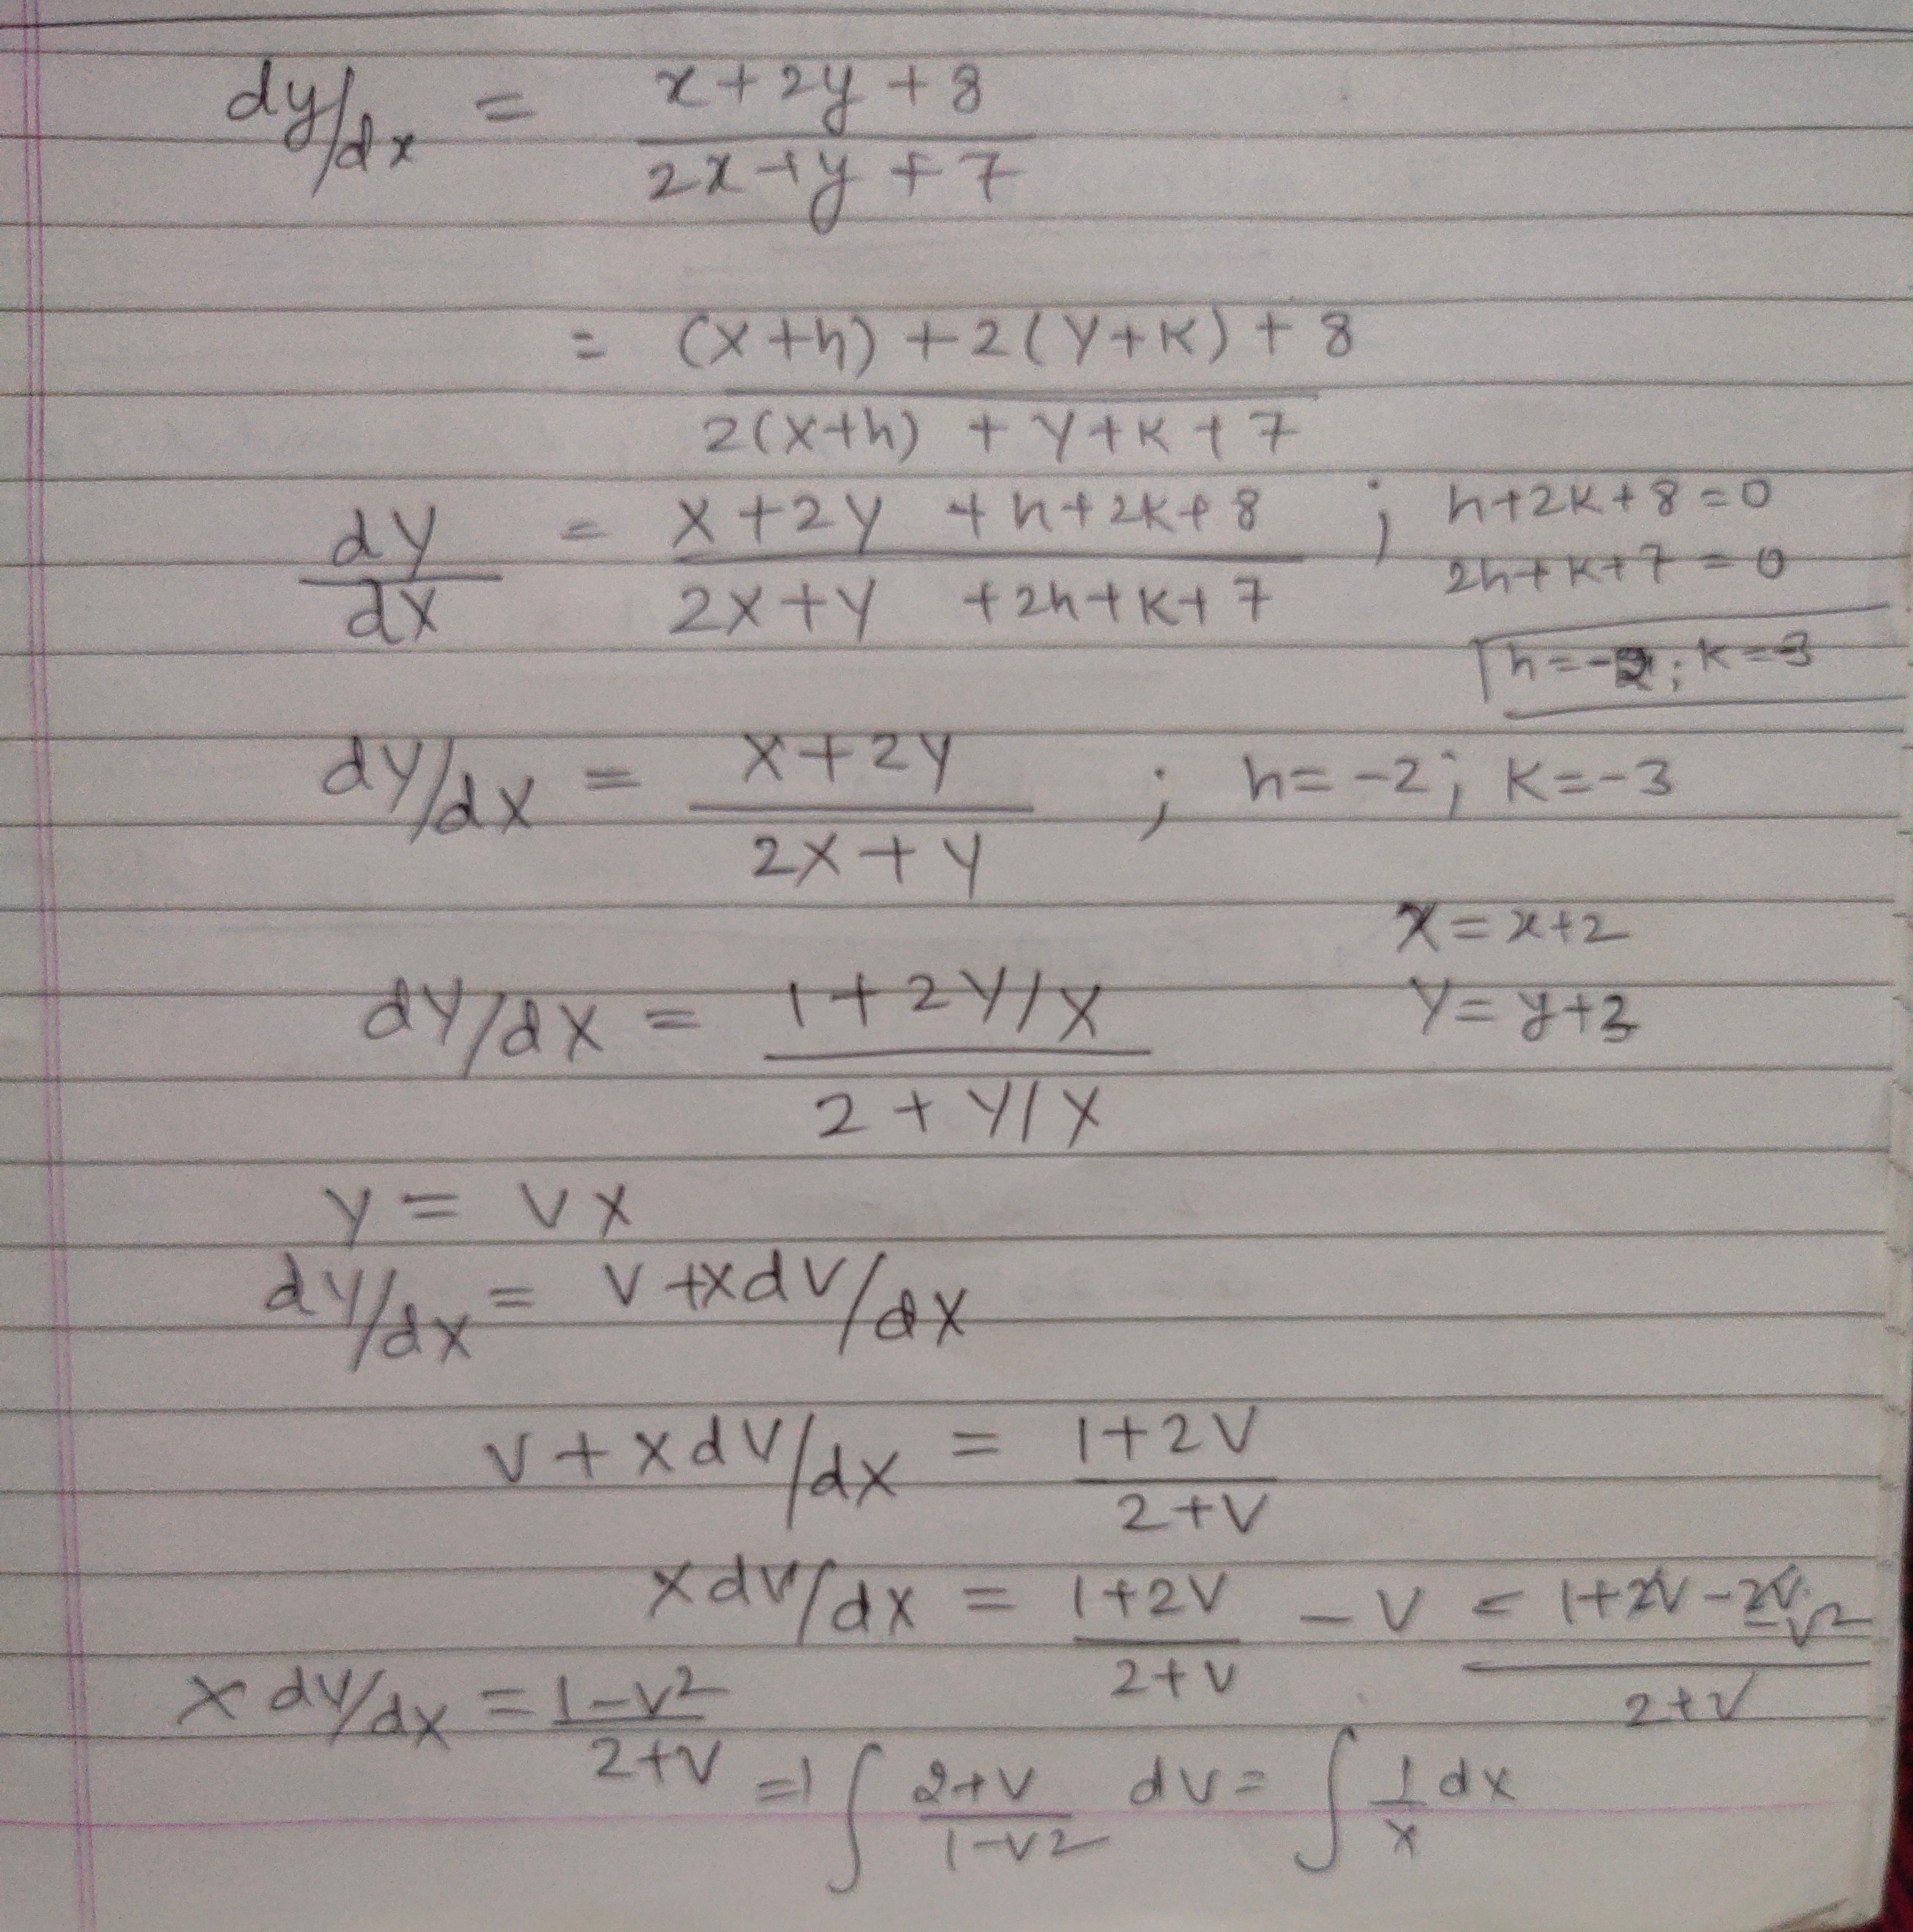 dy/dx = (x+2y+8)/(2x+y+7)
= ((X+h)+2(Y+K)+8)/(2(X+h)+Y+K+7)
dY/dX = (X+2Y+h+2K+8)/(2X+Y+2h+K+7) ; h+2K+8=0
2h+K+7=0
h=-2; K=-3
dY/dX = (X+2Y)/(2X+Y) ; h=-2; K=-3
X=x+2
Y=y+3
dY/dX = (1+2Y/X)/(2+Y/X)
Y=VX
dY/dX = V+XdV/dX
V+XdV/dX = (1+2V)/(2+V)
XdV/dX = (1+2V)/(2+V) - V = (1+2V-2V-V²)/(2+V)
X dV/dX = (1-V²)/(2+V)
⇒ ∫ (2+V)/(1-V²) dV = ∫ 1/X dX